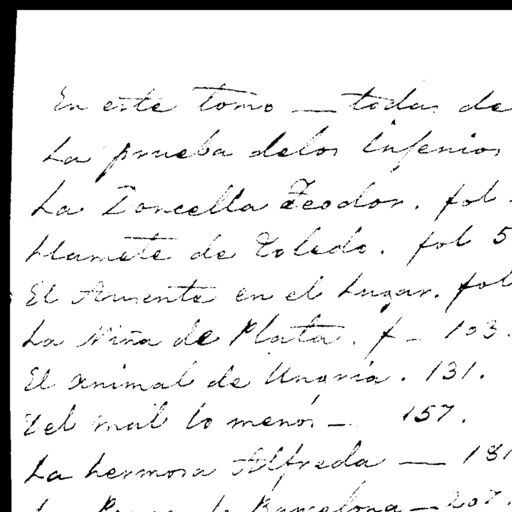 En este tomo — todas de
La prueba delos Infenios
La Doncella Teodor. fol
Hamete de Toledo. fol 5
El Ausente en el Lugar. fol
La Niña de Plata. f - 103.
El animal de Ungria. 131.
Del mal lo menos — 157.
La hermosa Alfreda — 181
de Barcelona — 207.